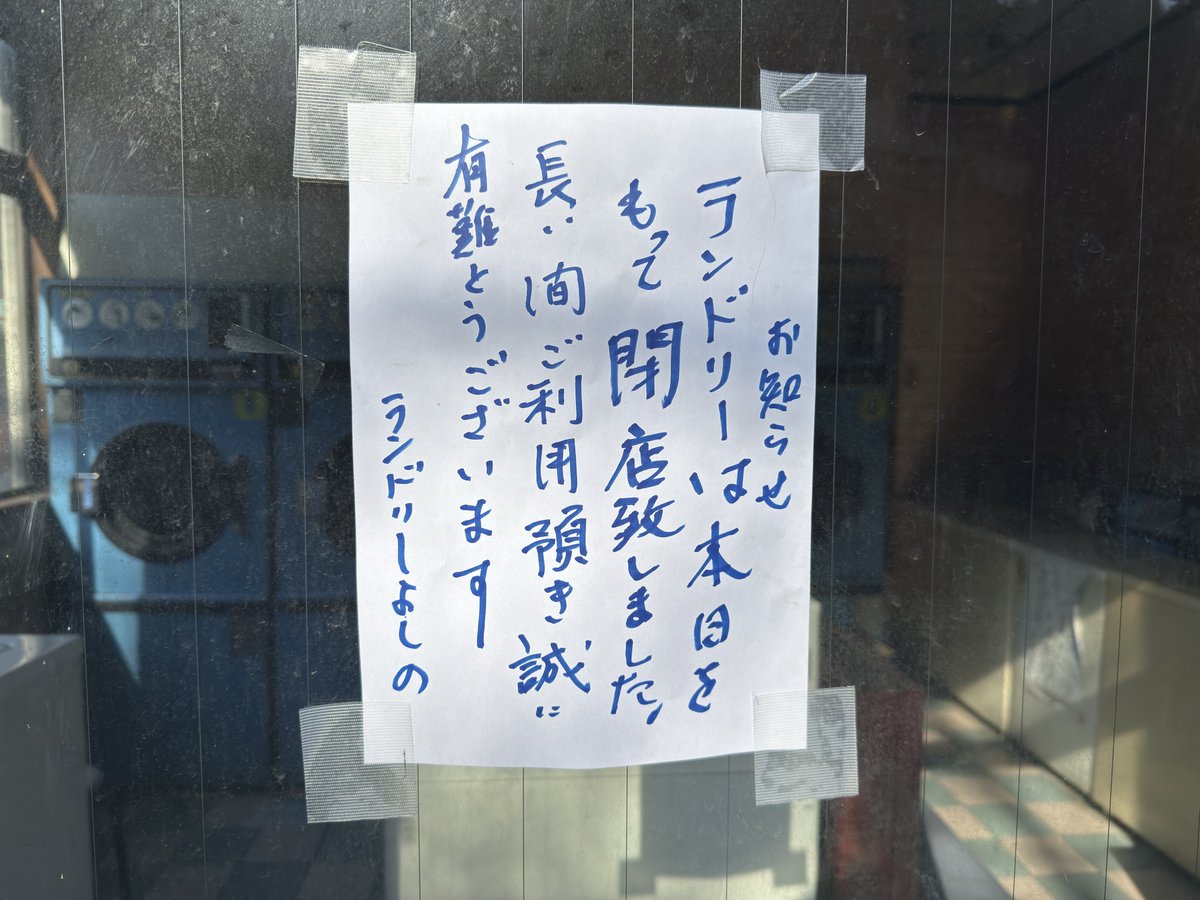 お知らせ
ランドリーは本日を
もって閉店致しました。
長い間ご利用預き誠に
有難とうございます
ランドリーよしの